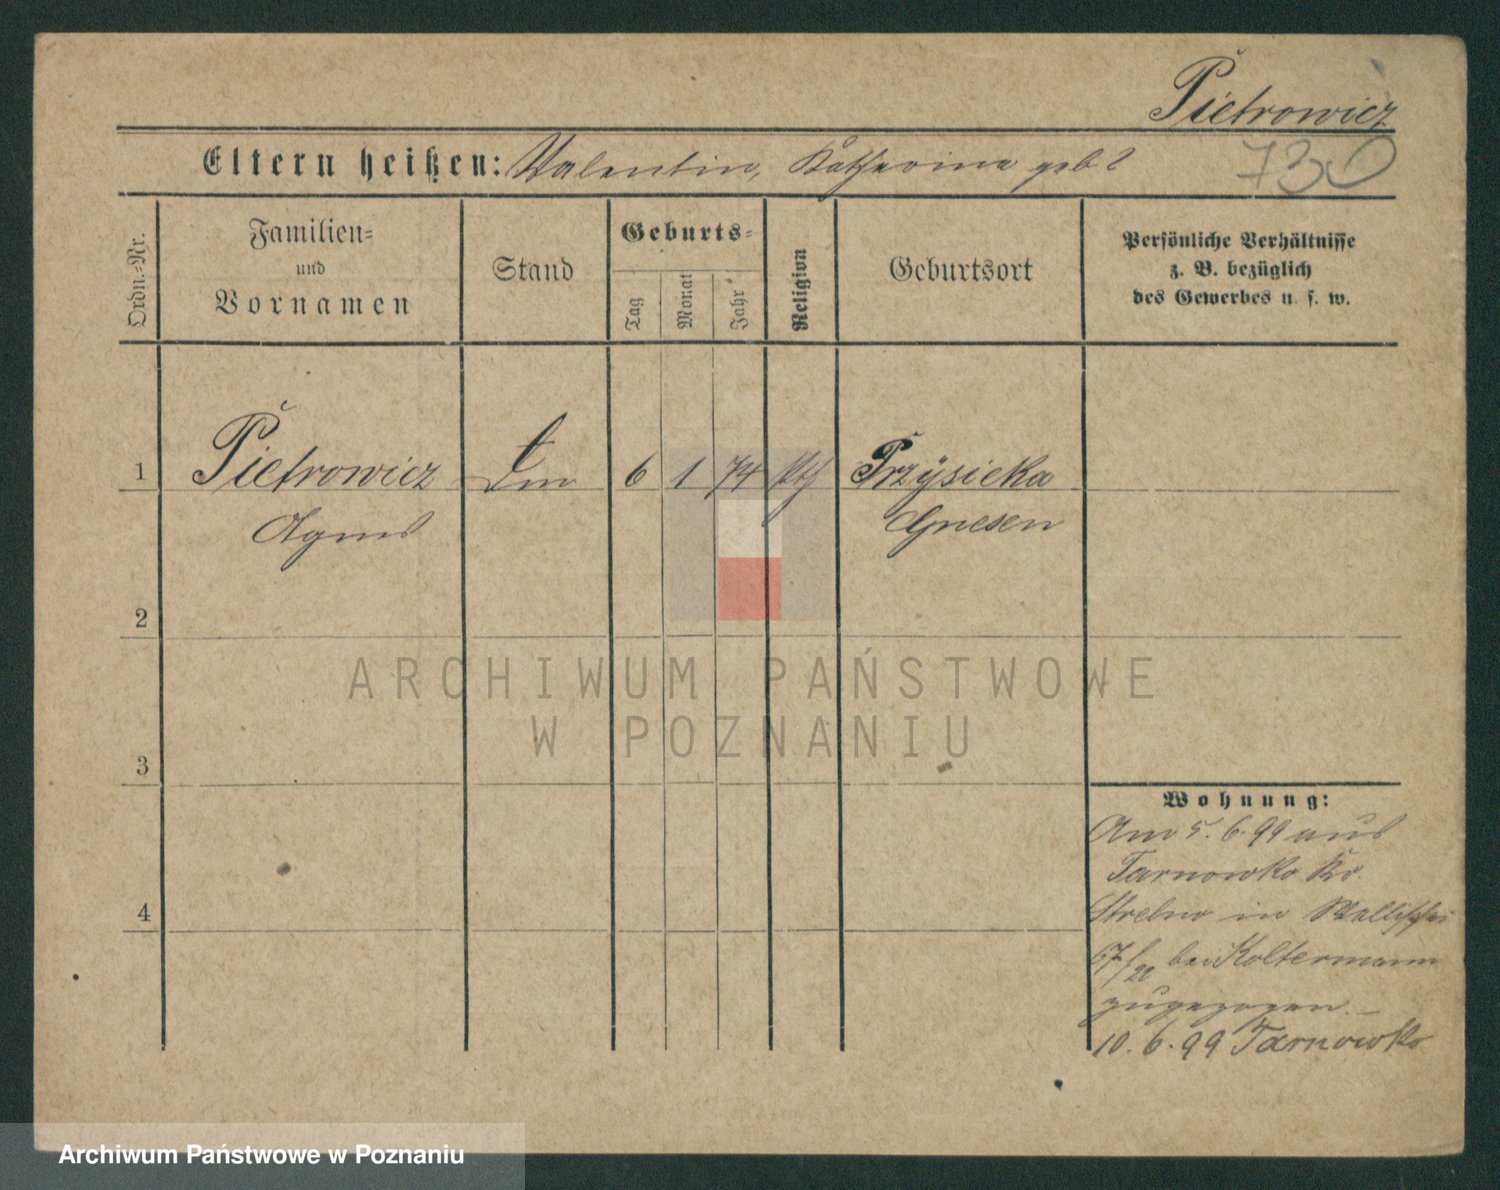 Pietrowicz
Eltern heißen: Valentin, Katharina geb?
730
Ordn.-Nr.
Familien-
und
Vornamen
Stand
Geburts-
Tag
Monat
Jahr
Religion
Geburtsort
Persönliche Verhältnisse
z. B. bezüglich
des Gewerbes u. s. w.
1 Pietrowicz 6 1 74 kth Przysieka
Agnes Gnesen
2
3
4
Wohnung:
Am 5. 6. 99 aus
Tarnowko Kr.
Strelno in Wallischei
67/20 bei Koltermann
zugezogen.
10. 6. 99 Tarnowko
ARCHIWUM PAŃSTWOWE
W POZNANIU
Archiwum Państwowe w Poznaniu